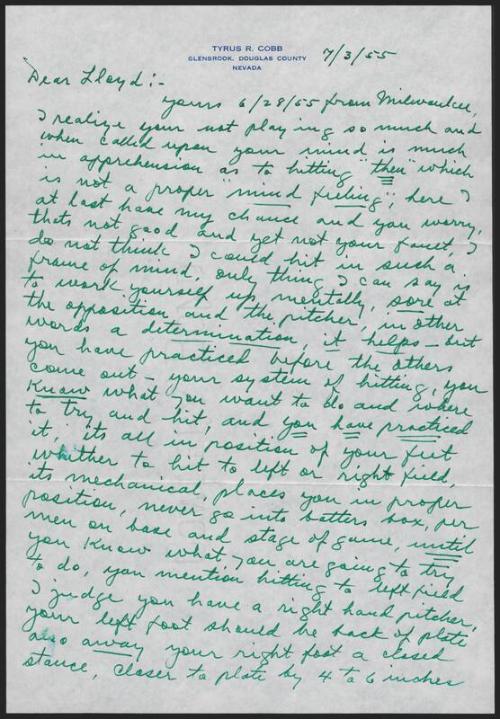 TYRUS R. COBB
GLENBROOK, DOUGLAS COUNTY
NEVADA
7/3/55
Dear Lloyd:-
yours 6/28/55 from Milwaukee,
I realize your not playing so much and
when called upon your mind is much
in apprehension as to hitting "then" which
is not a proper "mind feeling", here I
at last have my chance and you worry,
thats not good and yet not your fault, I
do not think I could hit in such a
frame of mind, only thing I can say is
to work yourself up, mentally, sore at
the opposition and the pitcher, in other
words a determination, it helps - but
you have practiced before the others
come out - your system of hitting, you
Know what you want to do and where
to try and hit, and you have practiced
it, its all in position of your feet
whither to hit to left or right field,
its mechanical, places you in proper
position, never go into batters box, per
men on base and stage of game, until
you Know what you are going to try
to do, you mention hitting to left field
I judge you have a right hand pitcher,
your left foot should be back of plate
also away your right foot a closed
stance, closer to plate by 4 to 6 inches